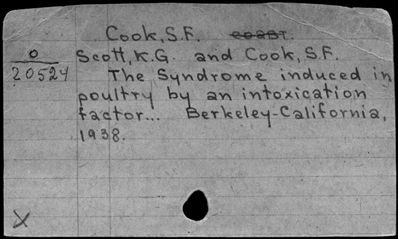 Cook, S.F. coast.
o
20524
Scott, K.G. and Cook, S.F.
The Syndrome induced in
poultry by an intoxication
factor... Berkeley-California,
1938.
X